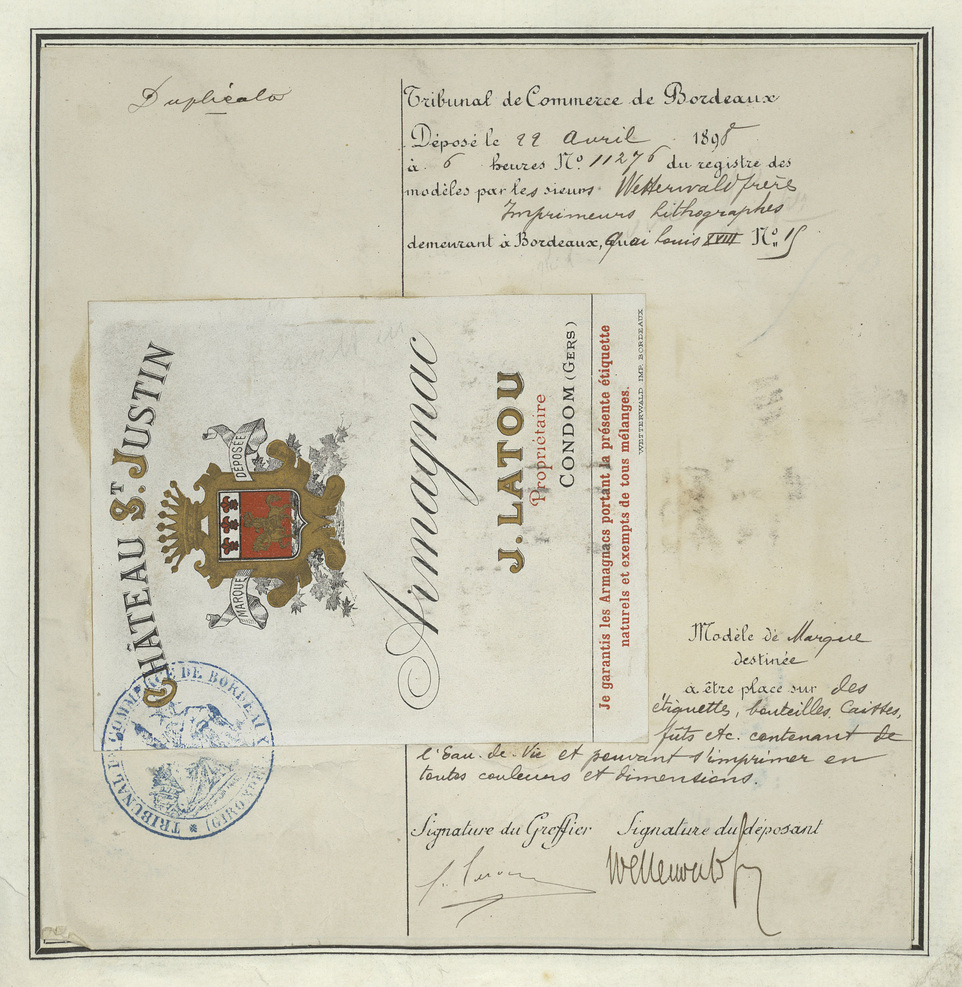 Duplicata
Tribunal de Commerce de Bordeaux
Déposé le 22 Avril 1898
à 6 heures No. 11276 du registre des
modèles par les sieurs Wetterwald frères
Imprimeurs Lithographes
demeurant à Bordeaux, Quai Louis XVIII No. 15
CHÂTEAU ST. JUSTIN
MARQUE DÉPOSÉE
Armagnac
J. LATOU
Propriétaire
CONDOM (GERS)
Je garantis les Armagnacs portant la présente étiquette
naturels et exempts de tous mélanges.
WETTERWALD IMP. BORDEAUX
TRIBUNAL DE COMMERCE DE BORDEAUX
(GIRONDE)
Modèle de Marque
destinée
à être placé sur des
étiquettes, bouteilles, Caisses,
futs etc. contenant de
l'Eau-de-Vie et pouvant s'imprimer en
toutes couleurs et dimensions.
Signature du Greffier Signature du déposant
Wetterwald